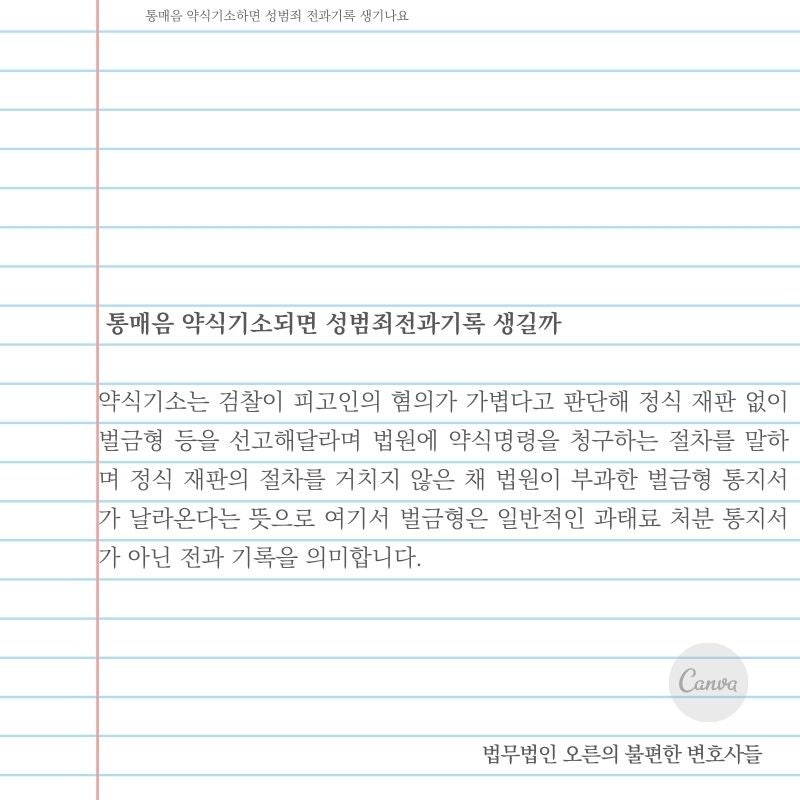 통매음 약식기소하면 성범죄 전과기록 생기나요
통매음 약식기소되면 성범죄전과기록 생길까
약식기소는 검찰이 피고인의 혐의가 가볍다고 판단해 정식 재판 없이
벌금형 등을 선고해달라며 법원에 약식명령을 청구하는 절차를 말하
며 정식 재판의 절차를 거치지 않은 채 법원이 부과한 벌금형 통지서
가 날라온다는 뜻으로 여기서 벌금형은 일반적인 과태료 처분 통지서
가 아닌 전과 기록을 의미합니다.
Canva
법무법인 오른의 불편한 변호사들